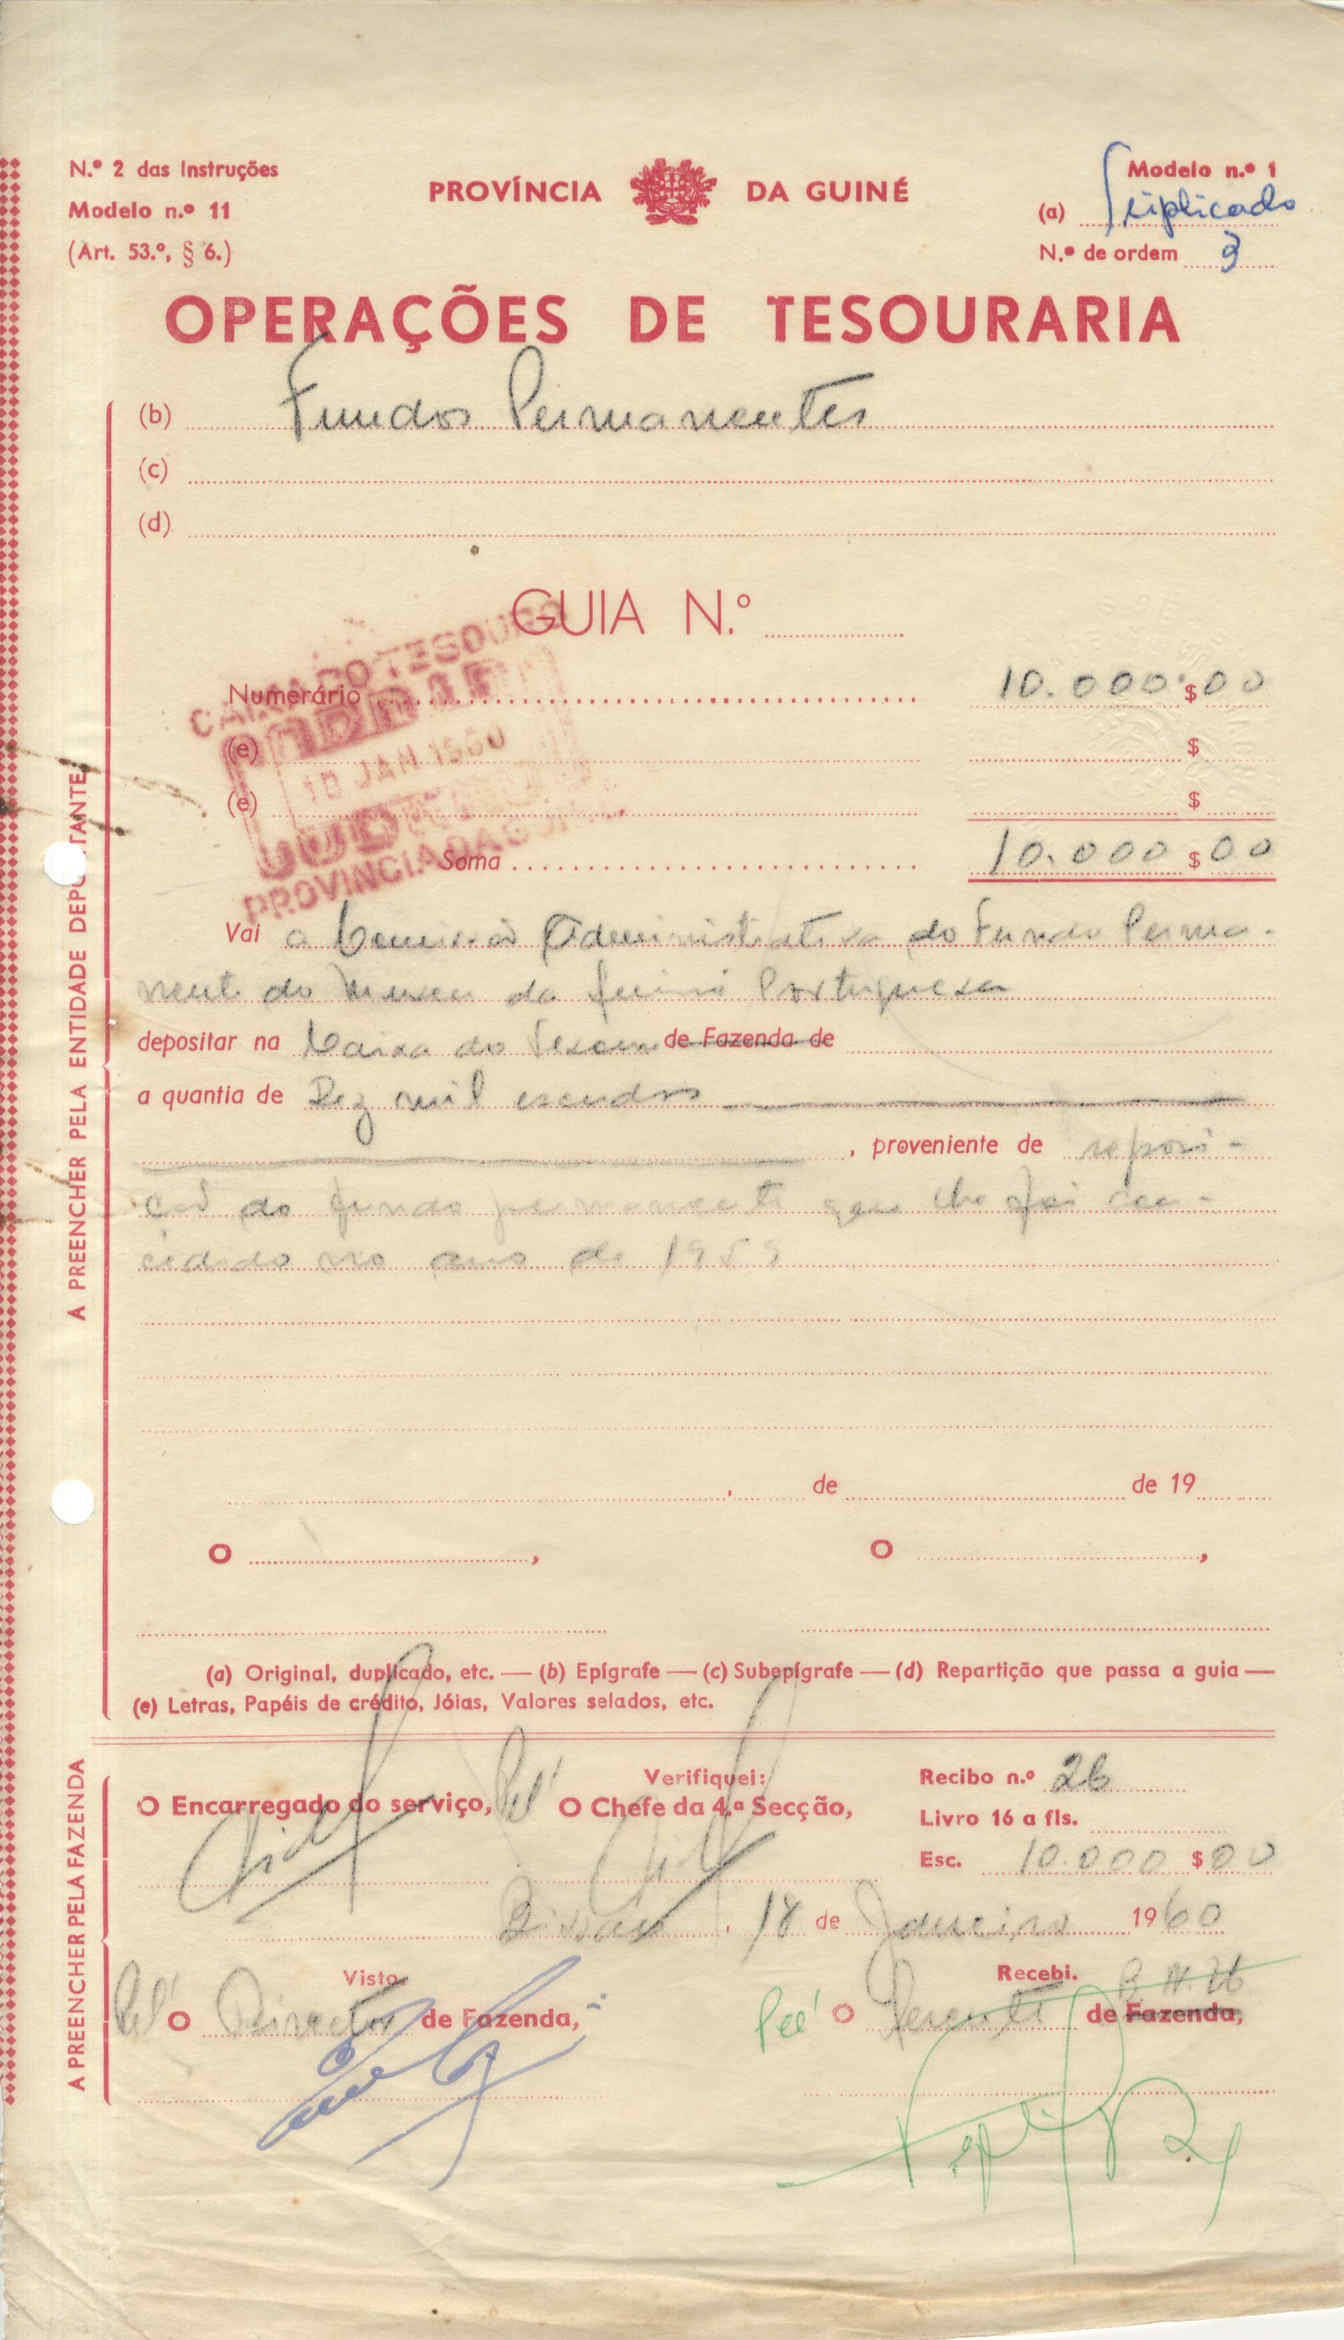 N.º 2 das Instruções
Modelo n.º 11
(Art. 53.º, § 6.)
PROVÍNCIA DA GUINÉ
Modelo n.º 1
(a) Triplicado
N.º de ordem 3
OPERAÇÕES DE TESOURARIA
(b) Fundos Permanentes
(c)
(d)
GUIA N.º
CAIXA DO TESOURO
18 JAN 1960
PROVINCIA DA GUINÉ
Numerário 10.000$00
(e) $
(e) $
Soma 10.000$00
Vai a Comissão Administrativa do Fundo Perma-
nente do Museu da Guiné Portuguesa
depositar na Caixa do Tesouro de Fazenda de
a quantia de Dez mil escudos
, proveniente de reposi-
ção do fundo permanente que lhe foi con-
cedido no ano de 1959
, de de 19
O , O ,
(a) Original, duplicado, etc. — (b) Epígrafe — (c) Subepígrafe — (d) Repartição que passa a guia —
(e) Letras, Papéis de crédito, Jóias, Valores selados, etc.
A PREENCHER PELA ENTIDADE DEPO TANTE
A PREENCHER PELA FAZENDA
O Encarregado do serviço,
Verifiquei:
Pel' O Chefe da 4.ª Secção,
Recibo n.º 26
Livro 16 a fls.
Esc. 10.000$00
Bissau, 18 de Janeiro 1960
Visto
Pel' O Director de Fazenda,
Recebi.
Pel' O Gerente B.N.U. de Fazenda,